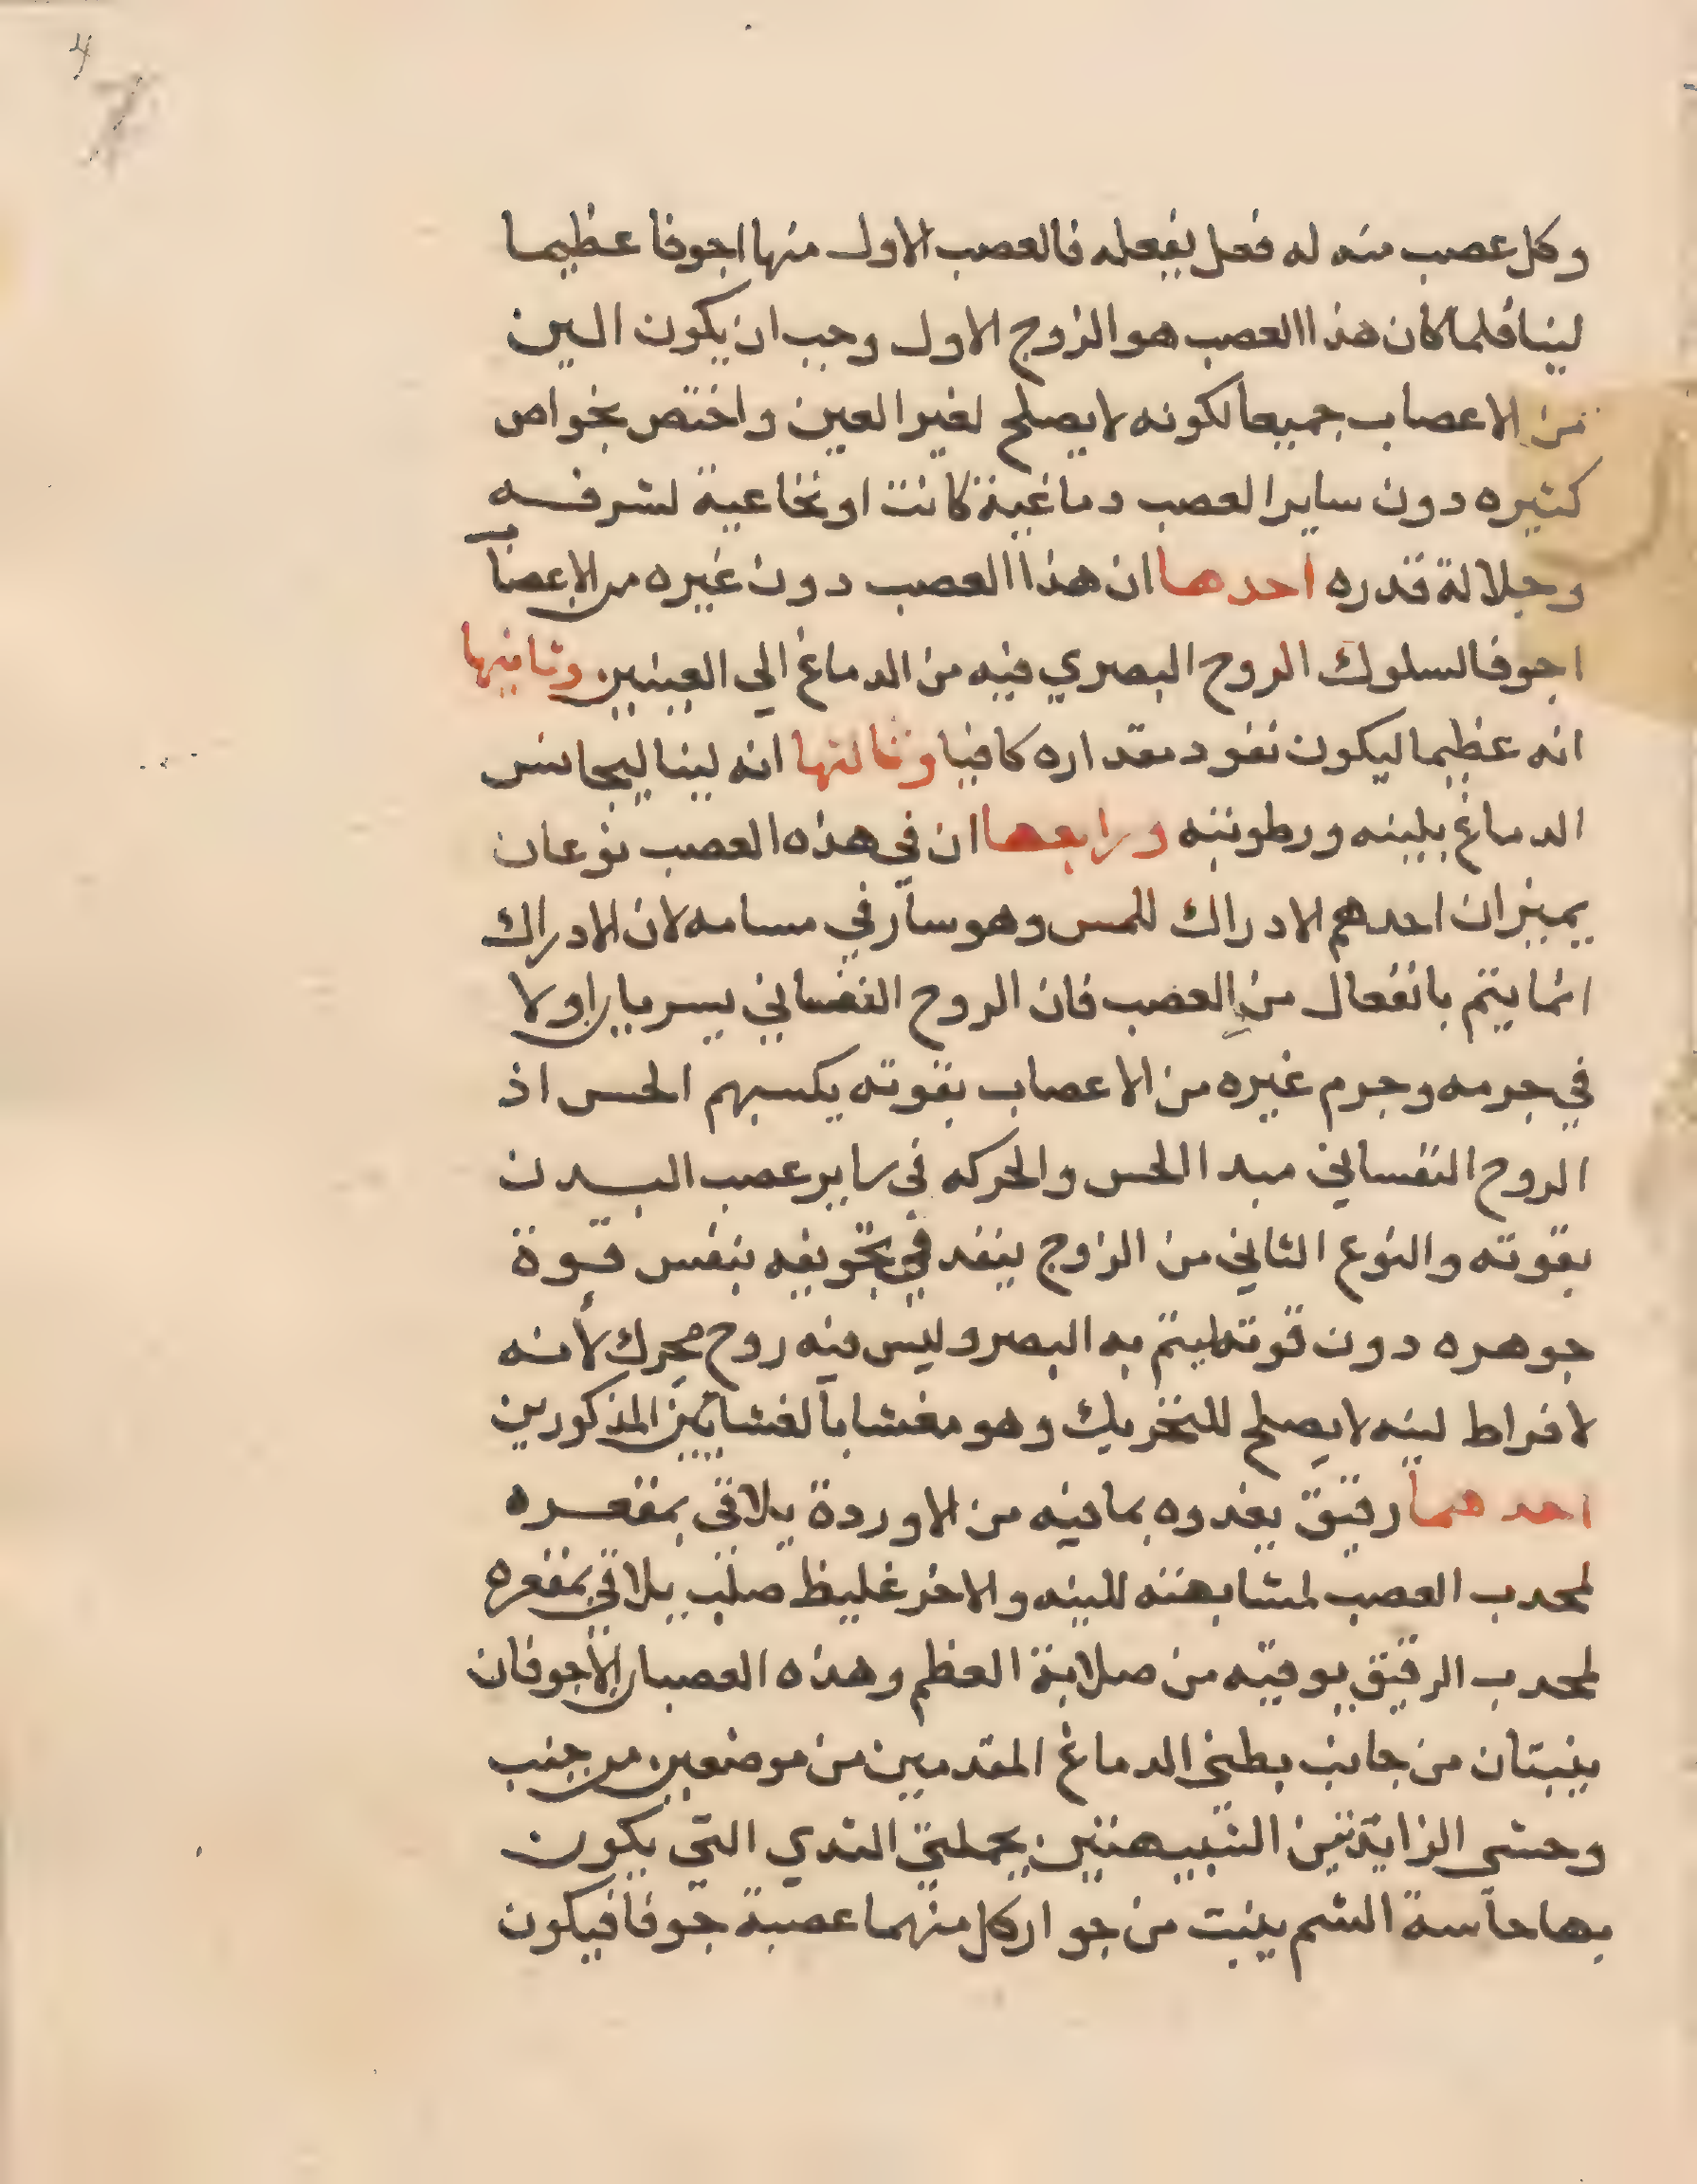 4
وكل عصب منه له فعل يفعله فالعصب الاول منها اجوفا عظيما
لينا فلما كان هذا العصب هو الزوج الاول وجب ان يكون الين
من الاعصاب جميعا لكونه لا يصلح لغير العين واختص بخواص
كثيره دون ساير العصب دماغية كانت او نخاعية لشرفه
وجلالة قدره احدها ان هذا العصب دون غيره من الاعصاب
اجوفا لسلوك الروح البصري فيه من الدماغ الي العينين وثانيها
انه عظيما ليكون نفود مقداره كافيا وثالثها انه لينا ليجانس
الدماغ بلينه ورطوبته ورابعها ان في هذه العصب نوعان
يميزان احدهم الادراك للمس وهو سار في مسامه لان الادراك
انما يتم بانفعال من العصب فان الروح النفساني يسريان اولا
في جرمه وجرم غيره من الاعصاب بقوته يكسبهم الحس اذ
الروح النفساني مبدا الحس والحركه في ساير عصب البدن
بقوته والنوع الثاني من الزوج ينفد في تجويفه بنفس قوة
جوهره دون قوته ليتم به البصر وليس فيه روح محرك لأنه
لافراط لينه لا يصلح للتحريك وهو مغشا بالغشايين المذكورين
احدهما رقيق يغدوه بما فيه من الاوردة يلاقي بمقعره
لمحدب العصب لمشابهته للينه والاخر غليظ صلب يلاقي بمقعره
لمحدب الرقيق يوقيه من صلابة العظم وهذه العصبان الأجوفان
ينبتان من جانب بطني الدماغ المقدمين من موضعين من جنب
وحشي الزايدتين الشبيهتين بحملتي الثدي التي يكون
بها حاسة الشم ينبت من جوار كل منهما عصبة جوفا فيكون